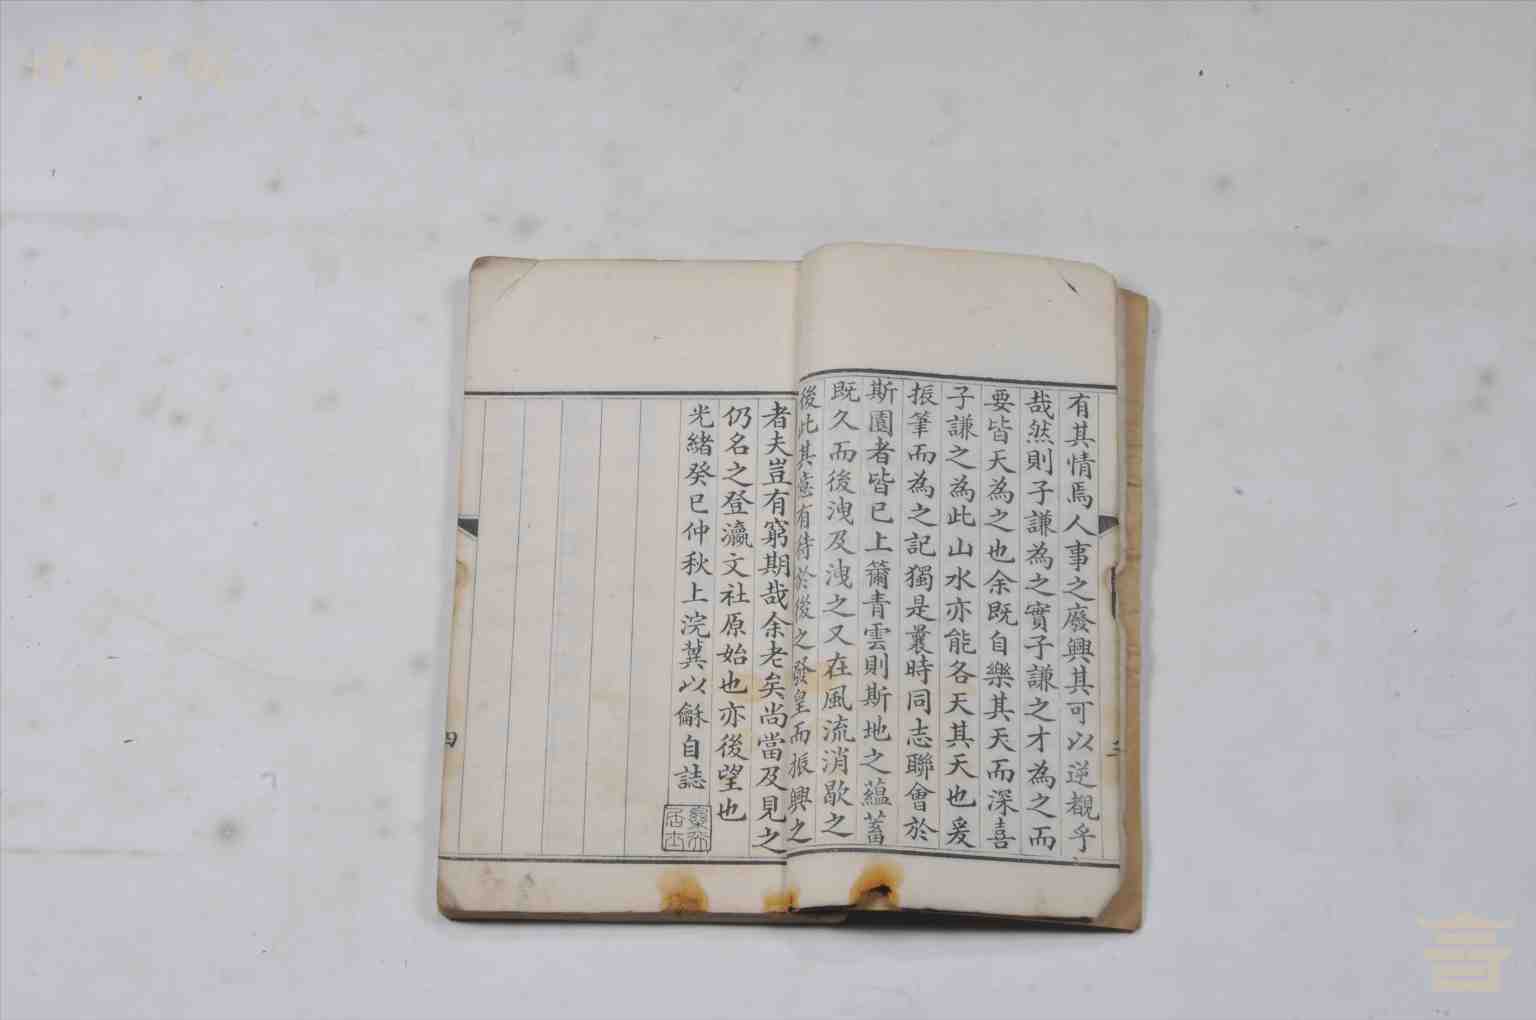 有其情焉人事之廢興其可以逆覩乎
哉然則子謙為之實子謙之才為之而
要皆天為之也余既自樂其天而深喜
子謙之為此山水亦能各天其天也爰
振筆而為之記獨是曩時同志聯會於
斯園者皆已上箾青雲則斯地之蘊蓄
既久而後洩及洩之又在風流消歇之
後此其意有待於後之發皇而振興之
者夫豈有窮期哉余老矣尚當及見之
仍名之登瀛文社原始也亦後望也
光緒癸巳仲秋上浣蓂以龢自誌
居士
三
四